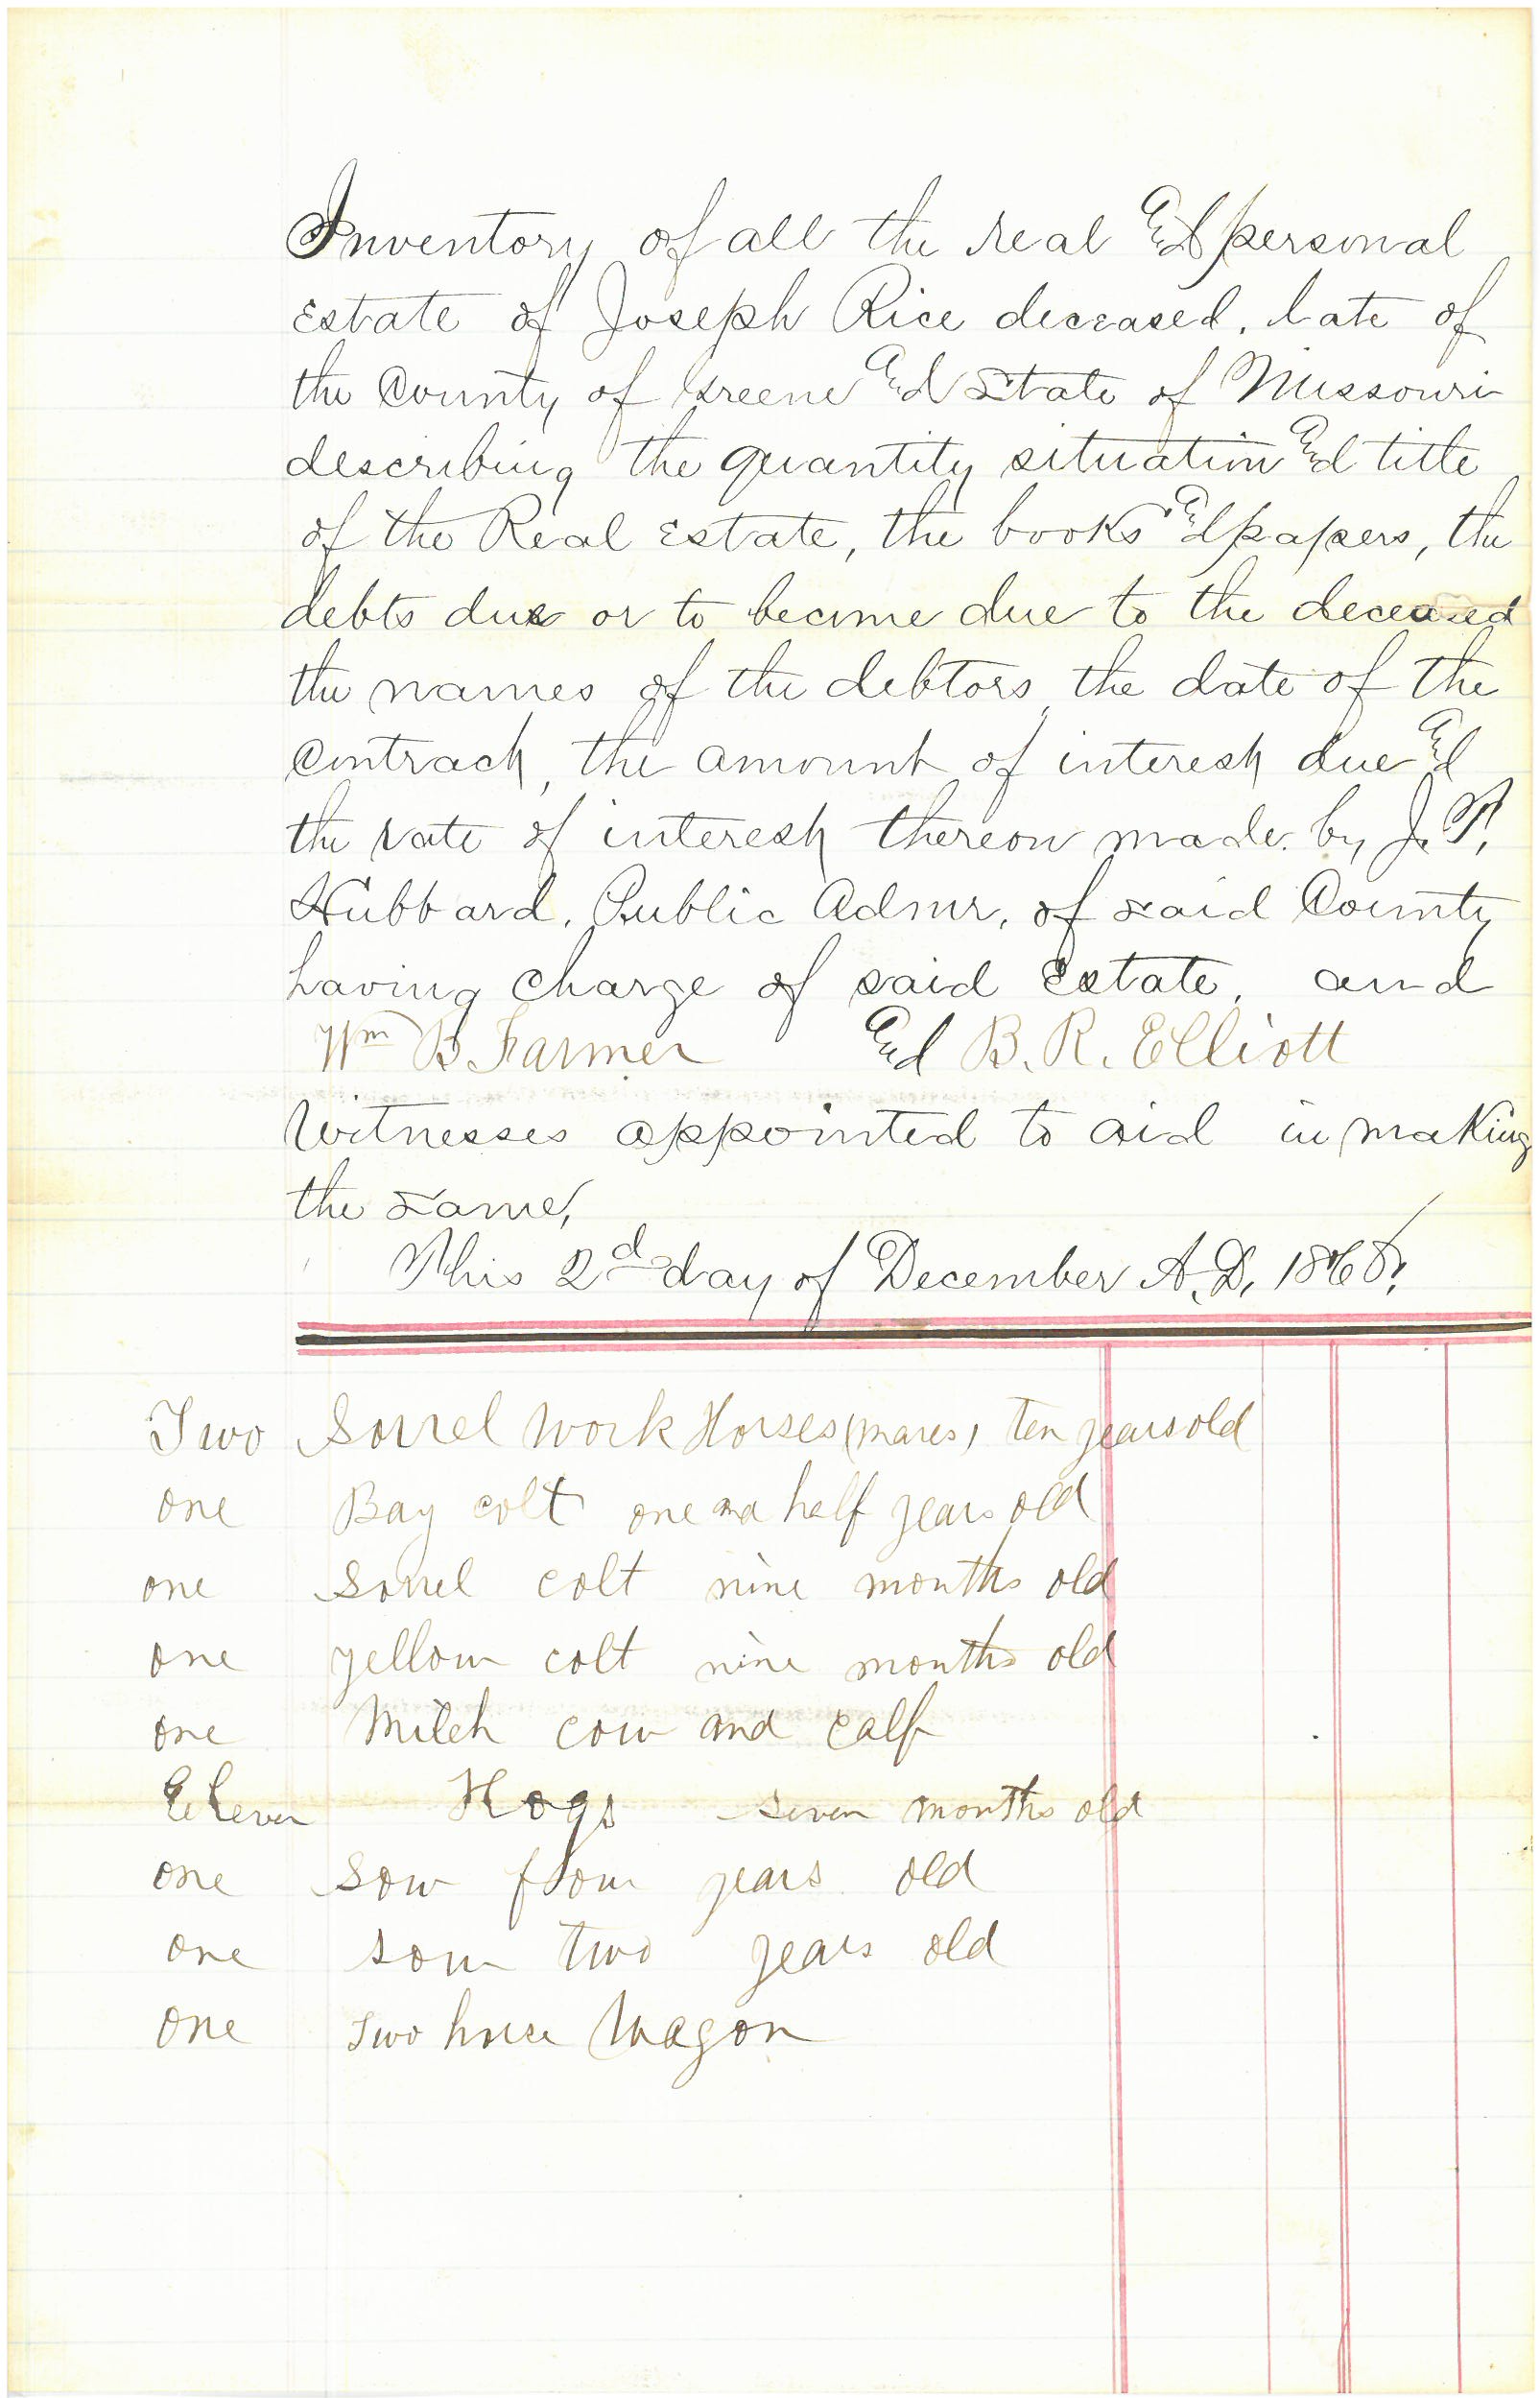 Inventory of all the real and personal
Estate of Joseph Rice deceased, late of
the County of Greene and State of Missouri
describing the quantity situation and title
of the Real Estate, the books and papers, the
debts due or to become due to the deceased
the names of the debtors, the date of the
Contract, the amount of interest due and
the rate of interest thereon made by J. T.
Hubbard, Public Admr, of said County
having charge of said Estate, and
Wm B. Farmer and B. R. Elliott
Witnesses appointed to aid in making
the same,
This 2d day of December A.D. 1868.
Two Sorrel Work Horses (mares) ten years old
one Bay colt one and half years old
one Sorrel colt nine months old
one yellow colt nine months old
one Milch cow and calf
Eleven Hogs seven months old
one sow four years old
one sow two years old
one Two horse Wagon